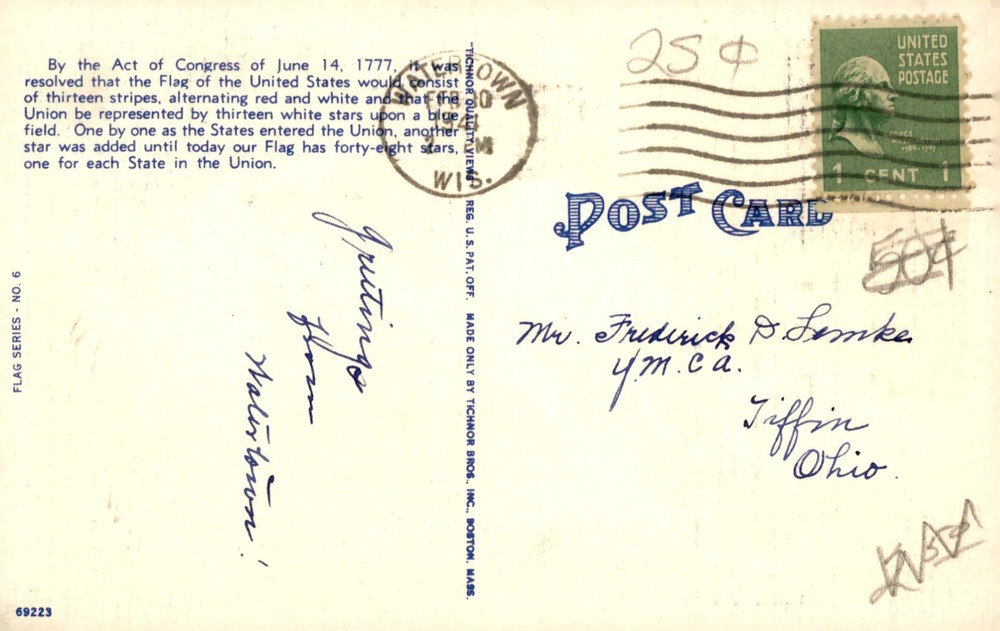 By the Act of Congress of June 14, 1777, it was
resolved that the Flag of the United States would consist
of thirteen stripes, alternating red and white and that the
Union be represented by thirteen white stars upon a blue
field. One by one as the States entered the Union, another
star was added until today our Flag has forty-eight stars,
one for each State in the Union.
FLAG SERIES - NO. 6
69223
Greetings
from
Watertown!
"TICHNOR QUALITY VIEWS" REG. U.S. PAT. OFF. MADE ONLY BY TICHNOR BROS., INC., BOSTON, MASS.
WATERTOWN
FEB 10
WIS.
25¢
UNITED
STATES
POSTAGE
1 CENT 1
POST CARD
50¢
Mr. Frederick D Lemke
Y.M.C.A.
Tiffin
Ohio.